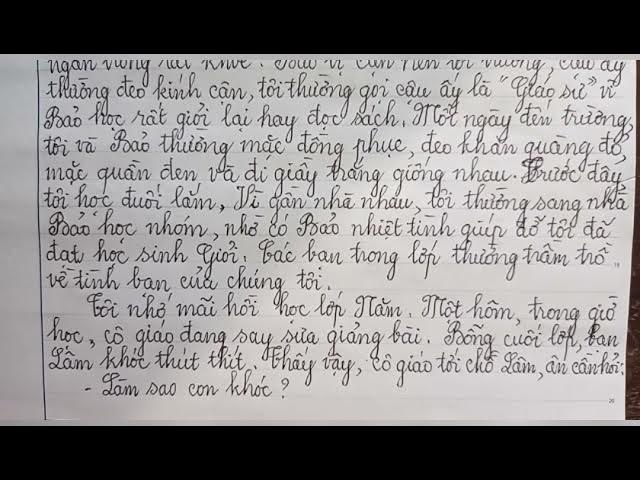 ngắn trông rất khỏe. Bảo bị cận nên tới trường, cậu ấy
thường đeo kính cận, tôi thường gọi cậu ấy là "Giáo sư" vì
Bảo học rất giỏi lại hay đọc sách. Mỗi ngày đến trường,
tôi và Bảo thường mặc đồng phục, đeo khăn quàng đỏ,
mặc quần đen và đi giầy trắng giống nhau. Trước đây
tôi học đuối lắm, Vì gần nhà nhau, tôi thường sang nhà
Bảo học nhóm, nhờ có Bảo nhiệt tình giúp đỡ tôi đã
đạt học sinh Giỏi. Các bạn trong lớp thường trầm trồ
về tình bạn của chúng tôi.
Tôi nhớ mãi hồi học lớp Năm. Một hôm, trong giờ
học, cô giáo đang say sưa giảng bài. Bỗng cuối lớp, bạn
Lâm khóc thút thít. Thấy vậy, cô giáo tới chỗ Lâm, ân cần hỏi:
- Làm sao con khóc?